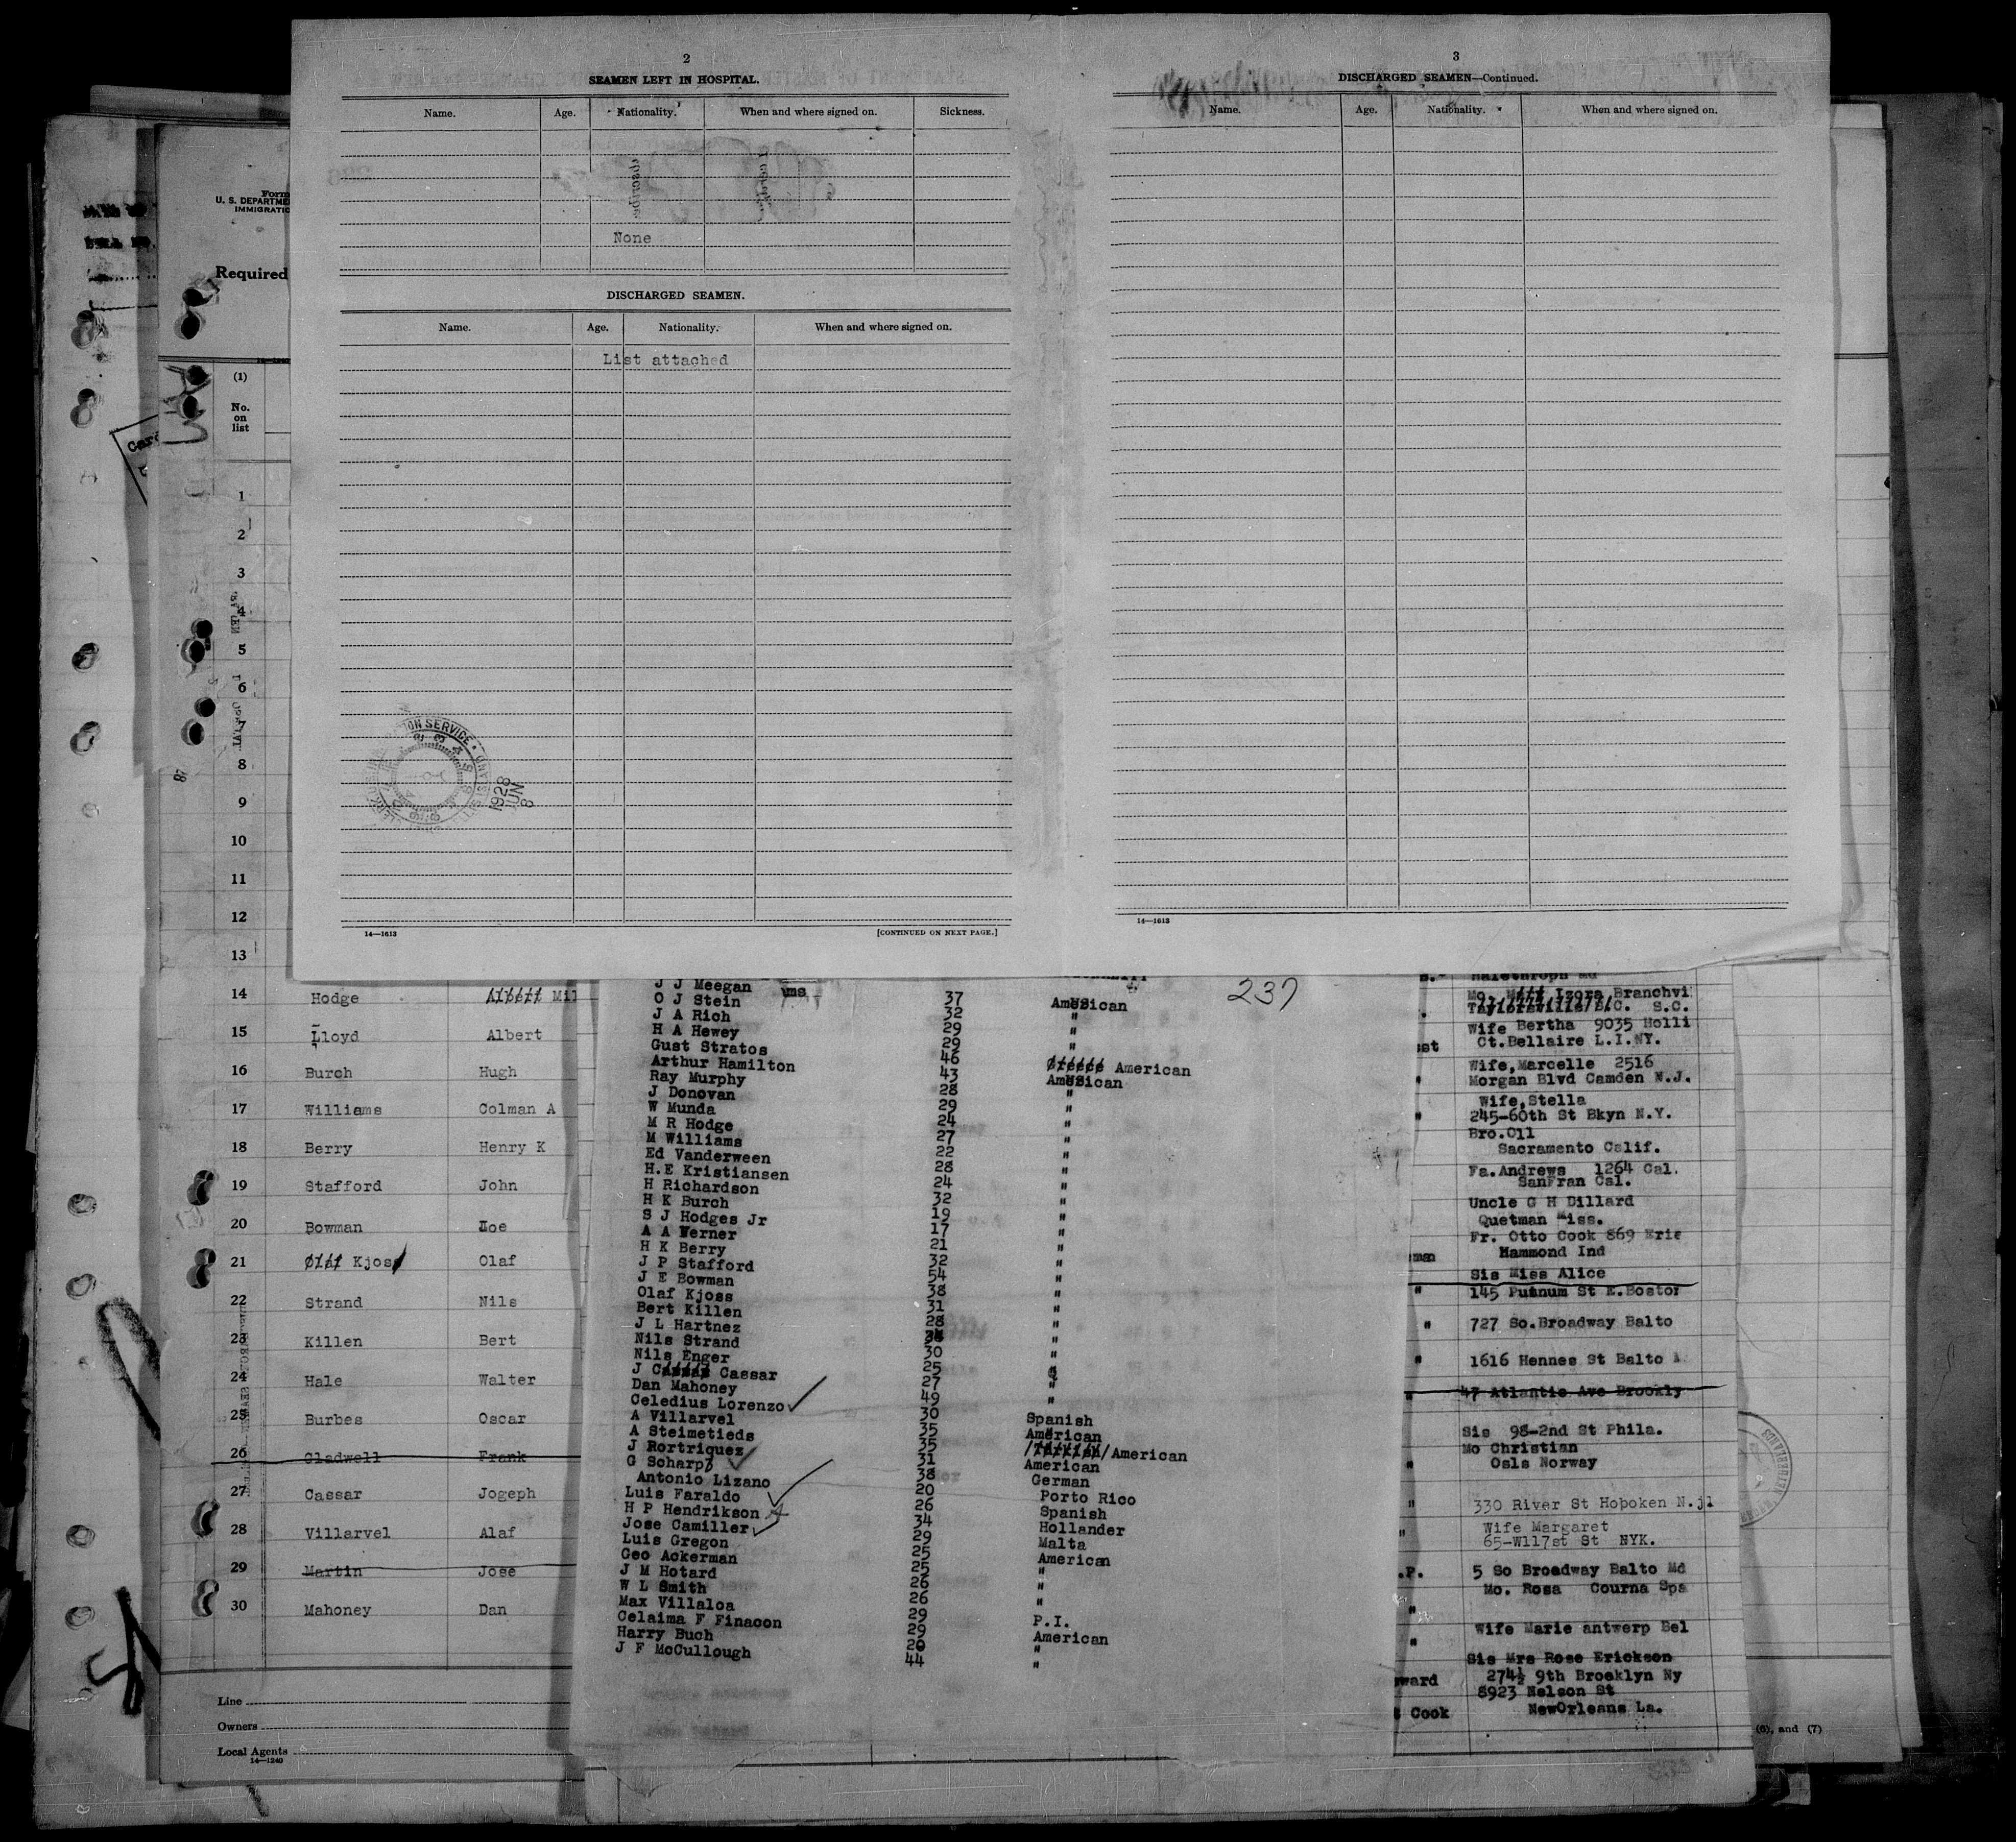 2
SEAMEN LEFT IN HOSPITAL.
Name. Age. Nationality. When and where signed on. Sickness.
None
DISCHARGED SEAMEN.
Name. Age. Nationality. When and where signed on.
List attached
1928 JUN 8
14—1613 [CONTINUED ON NEXT PAGE.]
3
DISCHARGED SEAMEN—Continued.
Name. Age. Nationality. When and where signed on.
14—1613
Form
U. S. DEPARTME
IMMIGRATIO
Required
(1)
No.
on
list
1
2
3
4
5
6
7
8
9
10
11
12
13
14 Hodge Mil
15 Lloyd Albert
16 Burch Hugh
17 Williams Colman A
18 Berry Henry K
19 Stafford John
20 Bowman
21 Kjoss Olaf
22 Strand Nils
23 Killen Bert
24 Hale Walter
25 Burbes Oscar
26 Gladwell Frank
27 Cassar Jogeph
28 Villarvel Alaf
29 Martin Jose
30 Mahoney Dan
Line
Owners
Local Agents
14—1240
237
J J Meegan 37 American
O J Stein 32 "
J A Rich 29 "
H A Hewey 29 "
Gust Stratos 46 American
Arthur Hamilton 43 American
Ray Murphy 28 "
J Donovan 29 "
W Munda 24 "
M R Hodge 27 "
M Williams 22 "
Ed Vanderween 28 "
H.E Kristiansen 24 "
H Richardson 32 "
H K Burch 19 "
S J Hodges Jr 17 "
A A Werner 21 "
H K Berry 32 "
J P Stafford 54 "
J E Bowman 38 "
Olaf Kjoss 31 "
Bert Killen 28 "
J L Hartnez "
Nils Strand 30 "
Nils Enger 25
J Cassar 27 "
Dan Mahoney 49 "
Celedius Lorenzo 30 Spanish
A Villarvel 35 American
A Steimetieds 35 American
J Rortriquez 31 American
G Scharp 38 German
Antonio Lizano 20 Porto Rico
Luis Faraldo 26 Spanish
H P Hendrikson 34 Hollander
Jose Camiller 29 Malta
Luis Gregon 25 American
Geo Ackerman 25 "
J M Hotard 26 "
W L Smith 26
Max Villaloa 29 P.I.
Celaima F Finacon 29 American
Harry Buch 20 "
J F McCullough 44 "
Mo. Izora Branchvi
S.C.
Wife Bertha 9035 Holli
Ct.Bellaire L.I.NY.
Wife,Marcelle 2516
Morgan Blvd Camden N.J.
Wife,Stella
245-60th St Bkyn N.Y.
Bro.Oll
Sacramento Calif.
Fa.Andrews 1264 Cal.
SanFran Cal.
Uncle G H Dillard
Quetman Miss.
Fr. Otto Cook 869 Erie
Hammond Ind
Sis Miss Alice
145 Putnum St E.Bostor
" 727 So.Broadway Balto
" 1616 Hennes St Balto
47 Atlantic Ave Brookly
Sis 98-2nd St Phila.
Mo Christian
Osls Norway
" 330 River St Hoboken N.jl
Wife Margaret
65-W117st St NYK.
.P. 5 So Broadway Balto Md
Mo. Rosa Courna Spa
Wife Marie antwerp Bel
Sis Mrs Rose Erickson
ward 274½ 9th Brooklyn Ny
8923 Nelson St
Cook NewOrleans La.
(6), and (7)